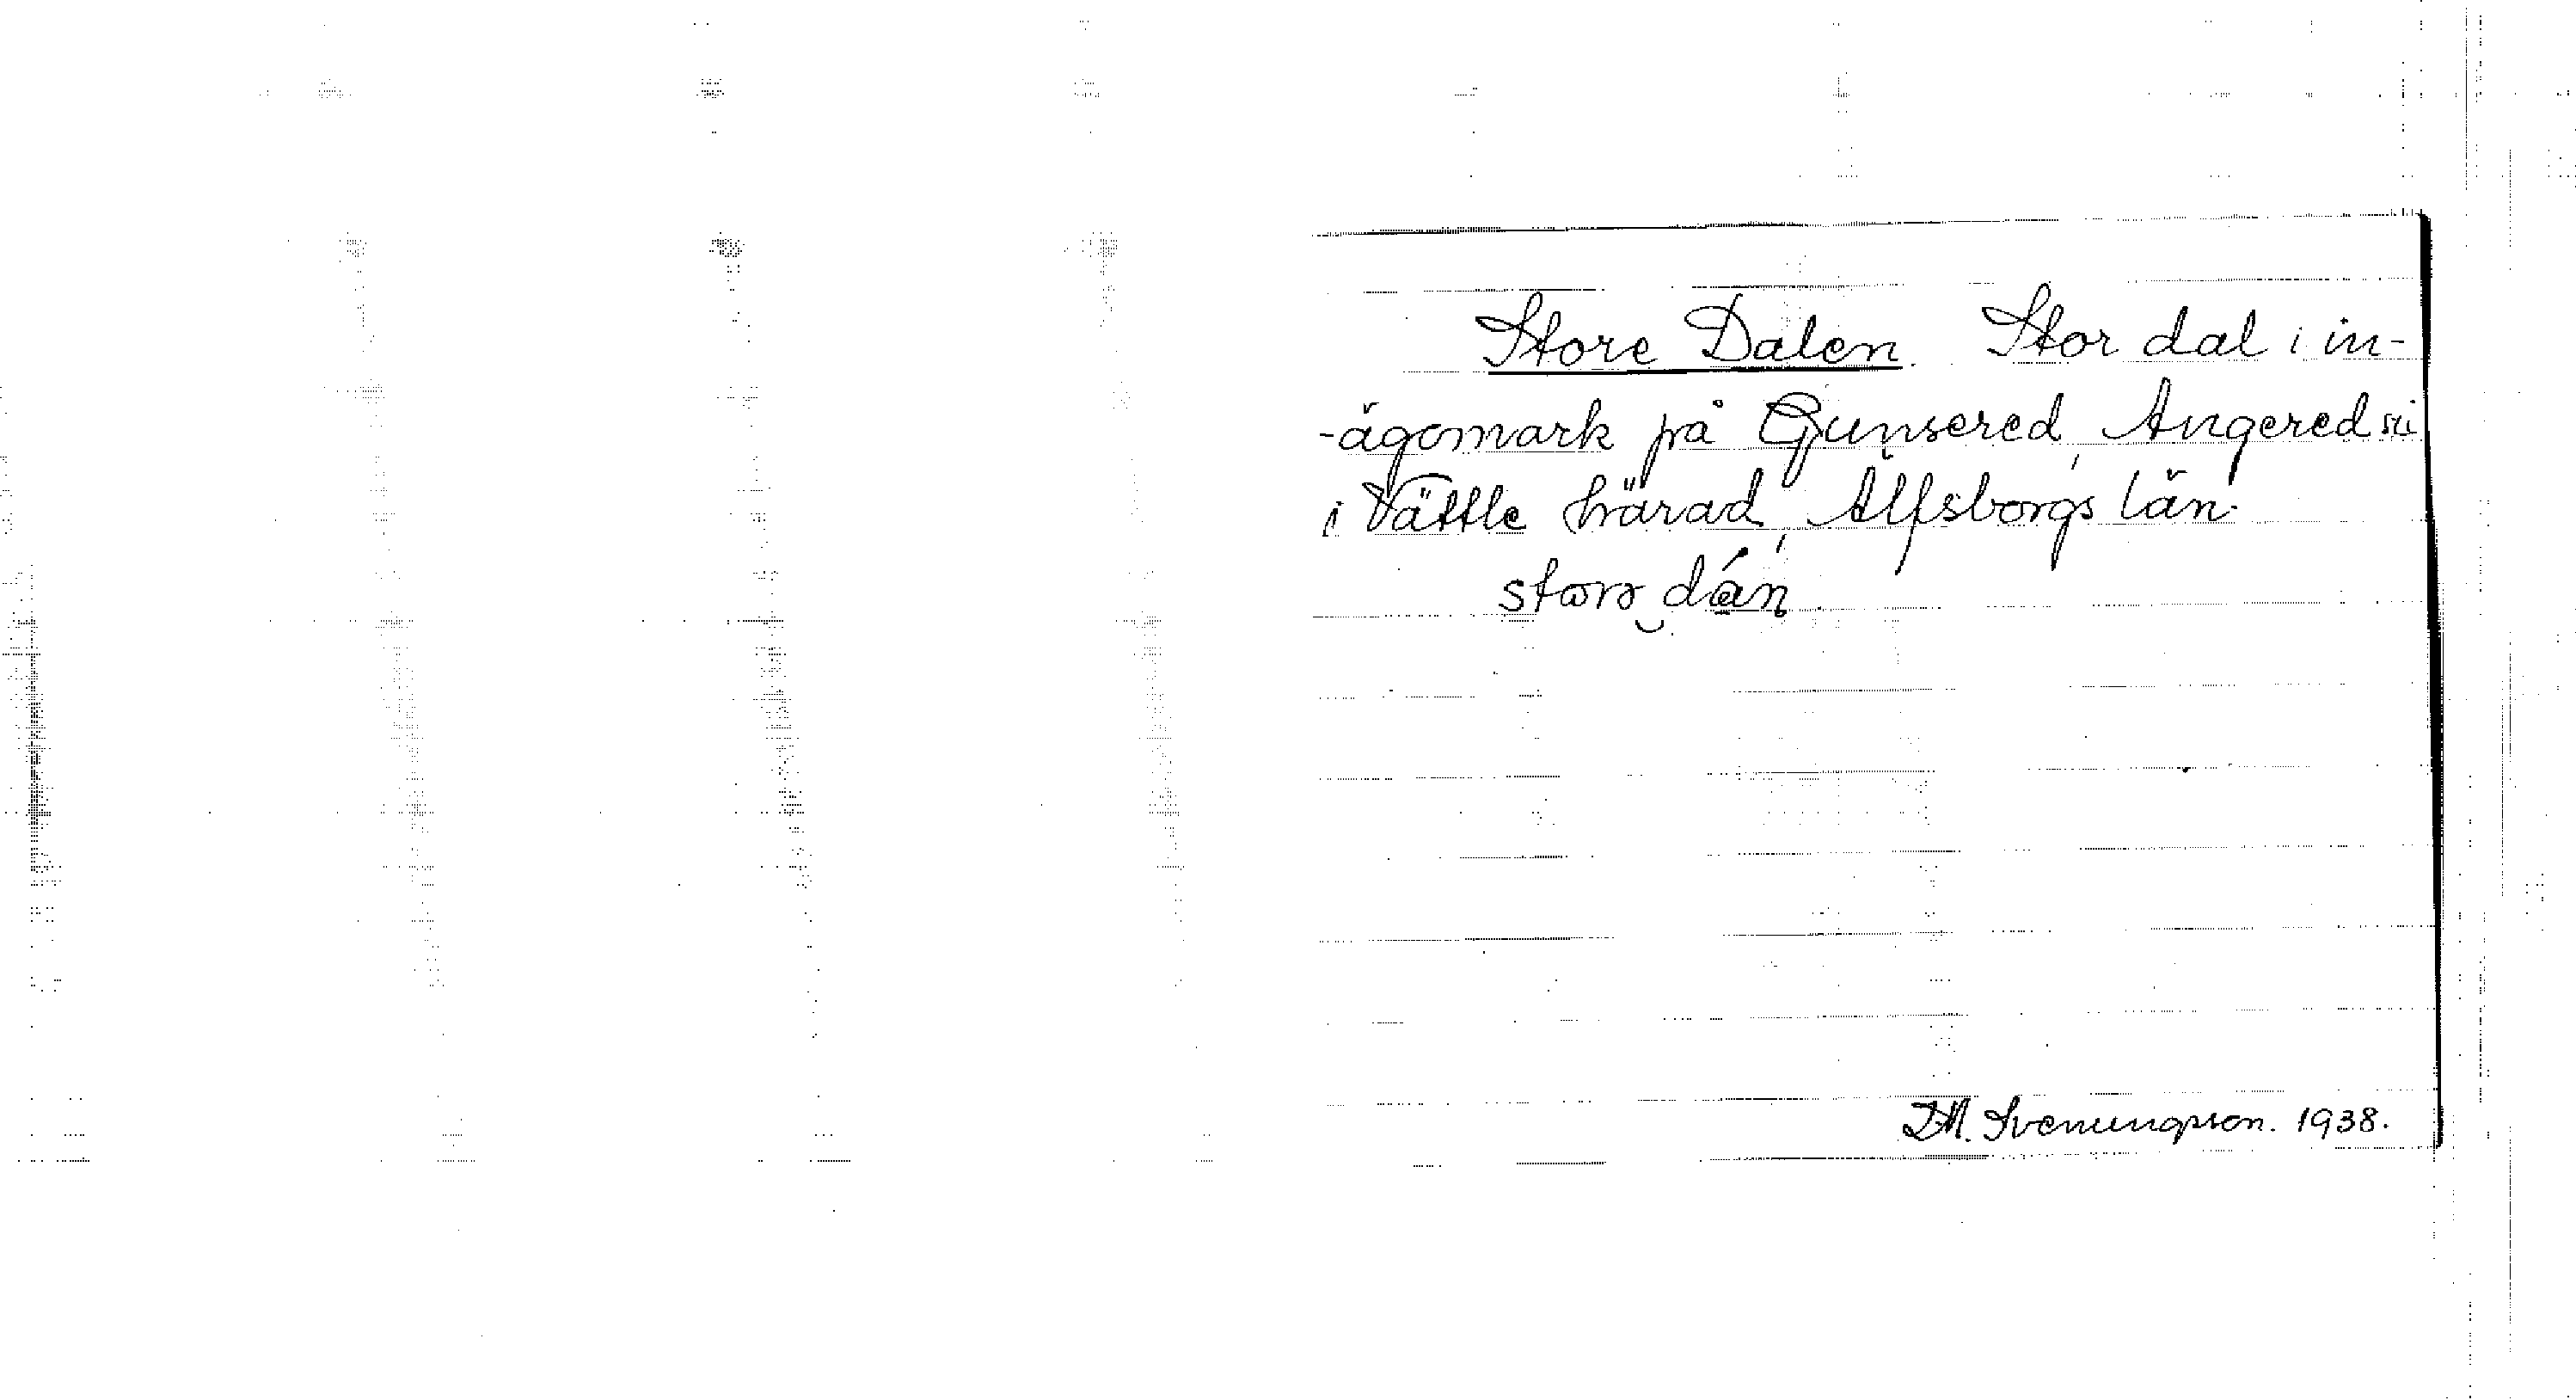 Store Dalen. Stor dal i in-
-ägomark på Gunsered, Angered sn
i Vättle härad, Älfsborgs län.
D.M. Svenungsson. 1938.